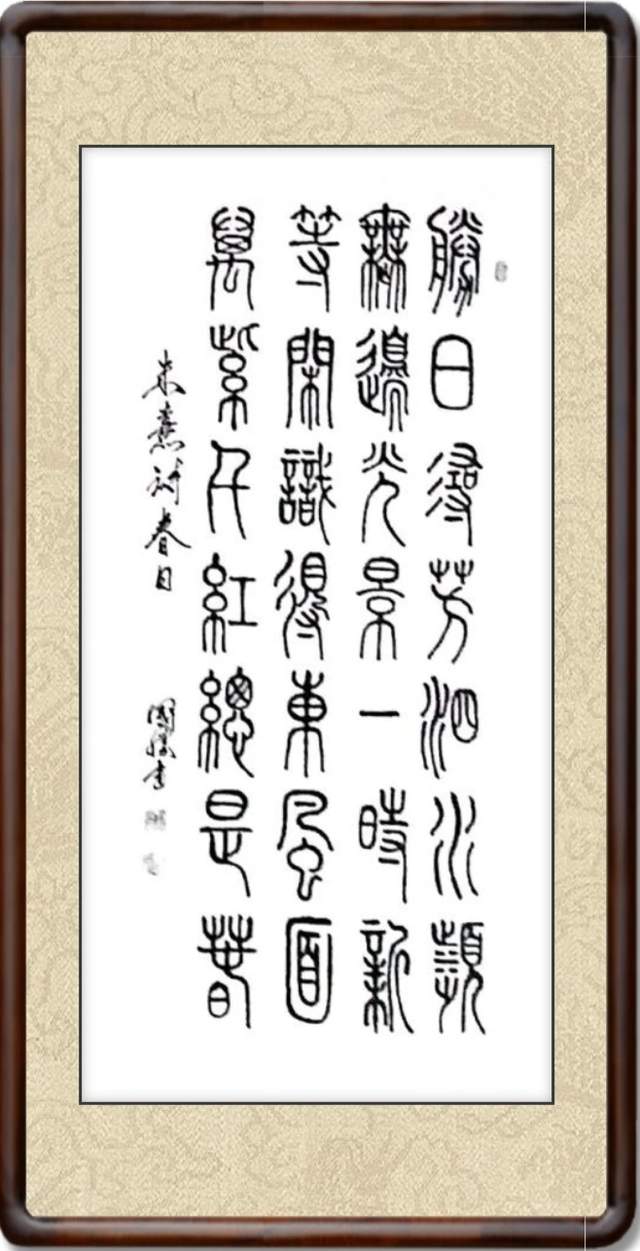 勝日尋芳泗水瀕
無邊光景一時新
等閑識得東風面
萬紫千紅總是春
朱熹詩春日
國書